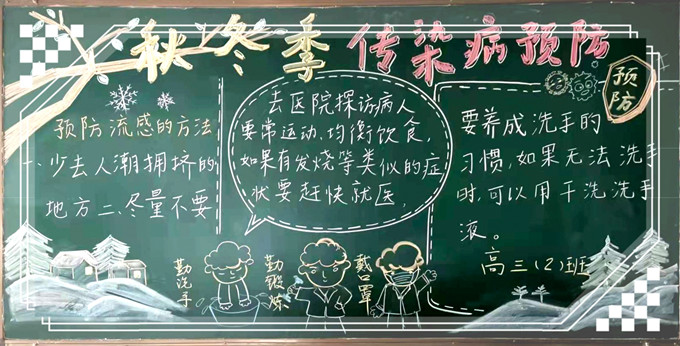 秋冬季传染病预防
预防
预防流感的方法
一、少去人潮拥挤的
地方二、尽量不要
去医院探访病人
要常运动、均衡饮食,
如果有发烧等类似的症
状要赶快就医,
要养成洗手的
习惯,如果无法洗手
时,可以用干洗洗手
液。
高三(2)班
勤洗手
勤锻炼
戴口罩